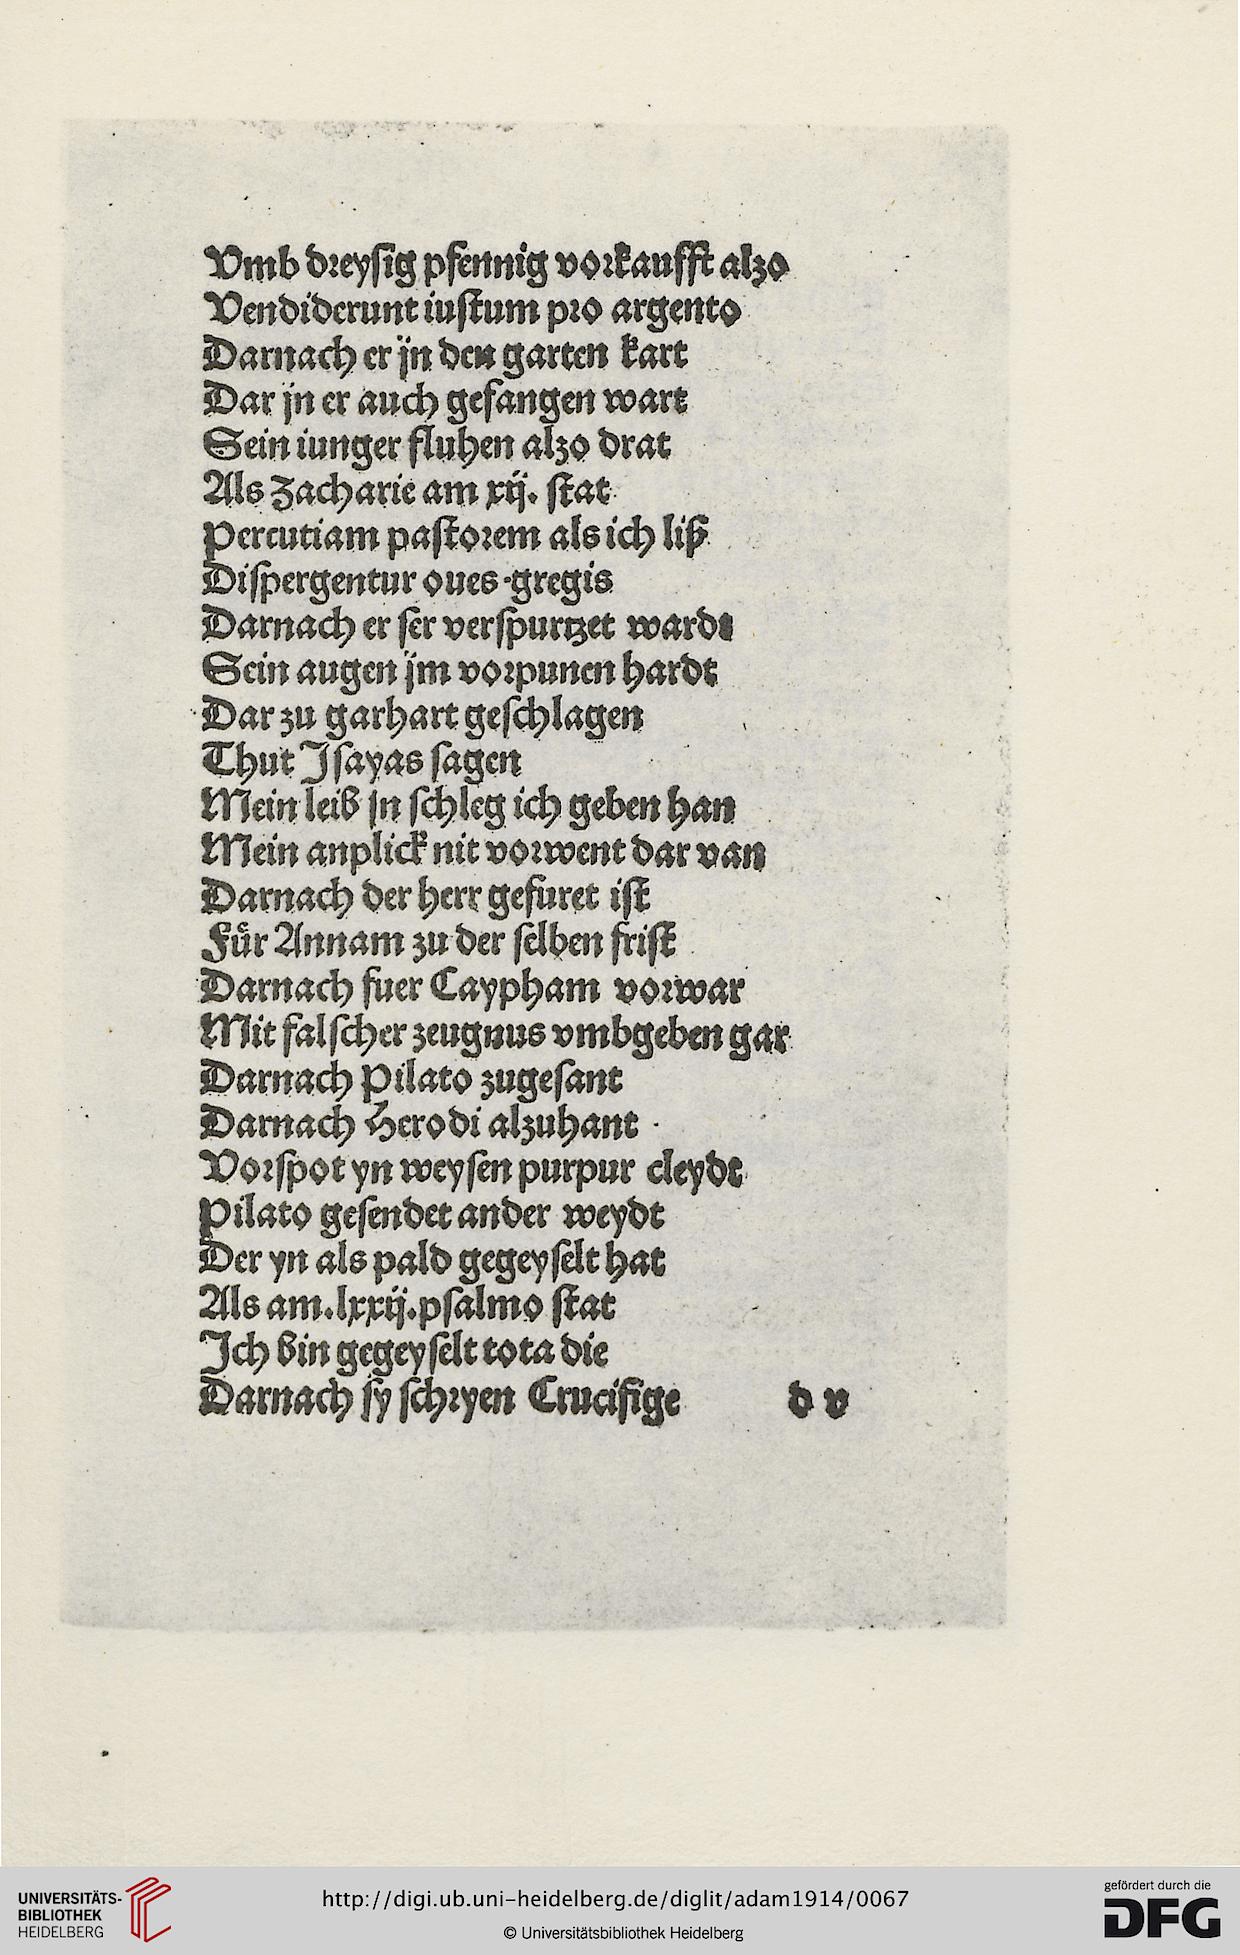 Vmb dreysig pfennig vorkaufft alzo
Vendiderunt iustum pro argento
Darnach er jn den garten kart
Dar jn er auch gefangen wart
Sein iunger fluhen alzo drat
Als Zacharie am xij. stat
Percutiam pastorem als ich liß
Dispergentur oues gregis
Darnach er ser verspurtzet wardt
Sein augen jm vorpunen hardt
Dar zu garhart geschlagen
Thut Jsayas sagen
Mein leib jn schleg ich geben han
Mein anplick nit vorwent dar van
Darnach der herr gefuret ist
Fuͤr Annam zu der selben frist
Darnach fuer Caypham vorwar
Mit falscher zeugnus vmbgeben gar
Darnach Pilato zugesant
Darnach Herodi alzuhant
Vorspot yn weysen purpur cleydt
Pilato gesendet ander weydt
Der yn als pald gegeyselt hat
Als am.lxxij.psalmo stat
Jch bin gegeyselt tota die
Darnach sy schryen Crucifige d v
UNIVERSITÄTS-
BIBLIOTHEK
HEIDELBERG
http://digi.ub.uni-heidelberg.de/diglit/adam1914/0067
© Universitätsbibliothek Heidelberg
gefördert durch die
DFG